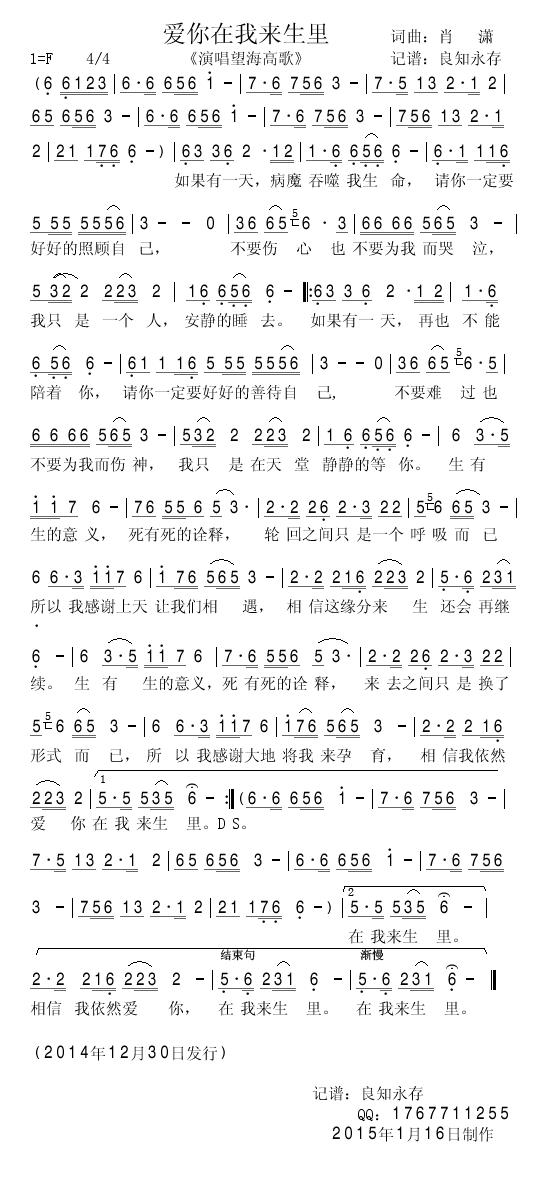 爱你在我来生里
词曲：肖 潇
1=F 4/4 《演唱望海高歌》 记谱：良知永存
(6 6123 | 6·6 656 1 - | 7·6 756 3 - | 7·5 13 2·1 2 |
65 656 3 - | 6·6 656 1 - | 7·6 756 3 - | 756 13 2·1
2 | 21 176 6 -) | 63 36 2 ·12 | 1·6 656 6 - | 6·1 116
如果有一天，病魔 吞噬 我生 命， 请你一定要
5 55 5556 | 3 - - 0 | 36 65 5 6 · 3 | 66 66 565 3 - |
好好的照顾自 己， 不要伤 心 也 不要为我 而哭 泣，
5 32 2 223 2 | 16 656 6 - ‖:63 3 6 2 ·1 2 | 1·6
我只 是 一个 人， 安静的睡 去。 如果有一 天，再也 不 能
6 56 6 - | 61 1 16 5 55 5556 | 3 - - 0 | 36 65 5 6·5 |
陪着 你， 请你一定要好好的善待自 己， 不要难 过也
6 6 66 565 3 - | 532 2 223 2 | 1 6 656 6 - | 6 3·5
不要为我而伤 神， 我只 是在天 堂 静静的等 你。 生 有
1 1 7 6 - | 76 55 6 5 3· | 2·2 26 2·3 22 | 5 5 6 65 3 - |
生的意 义， 死有死的诠释， 轮 回之间只 是一个 呼 吸 而 已
6 6·3 117 6 | 1 76 565 3 - | 2·2 216 223 2 | 5·6 231
所以 我感谢上天 让我们相 遇， 相 信这缘分来 生 还会 再继
6 - | 6 3·5 11 7 6 | 7·6 556 5 3· | 2·2 26 2·3 22 |
续。 生 有 生的意义，死 有死的诠 释， 来 去之间只 是 换了
5 5 6 65 3 - | 6 6·3 117 6 | 176 565 3 - | 2·2 2 16
形式 而 已，所 以 我感谢大地 将我 来孕 育， 相 信我依然
1
223 2 | 5·5 535 6 - :‖(6·6 656 1 - | 7·6 756 3 - |
爱 你 在 我 来生 里。D S。
7·5 13 2·1 2 | 65 656 3 - | 6·6 656 1 - | 7·6 756
2
3 - | 756 13 2·1 2 | 21 176 6 -) | 5·5 535 6 - |
在 我来生 里。
结束句 渐慢
2·2 216 223 2 - | 5·6 231 6 - | 5·6 231 6 - ‖
相信 我依然爱 你， 在 我来生 里。 在 我来生 里。
(2014年12月30日发行)
记谱：良知永存
QQ：1767711255
2015年1月16日制作